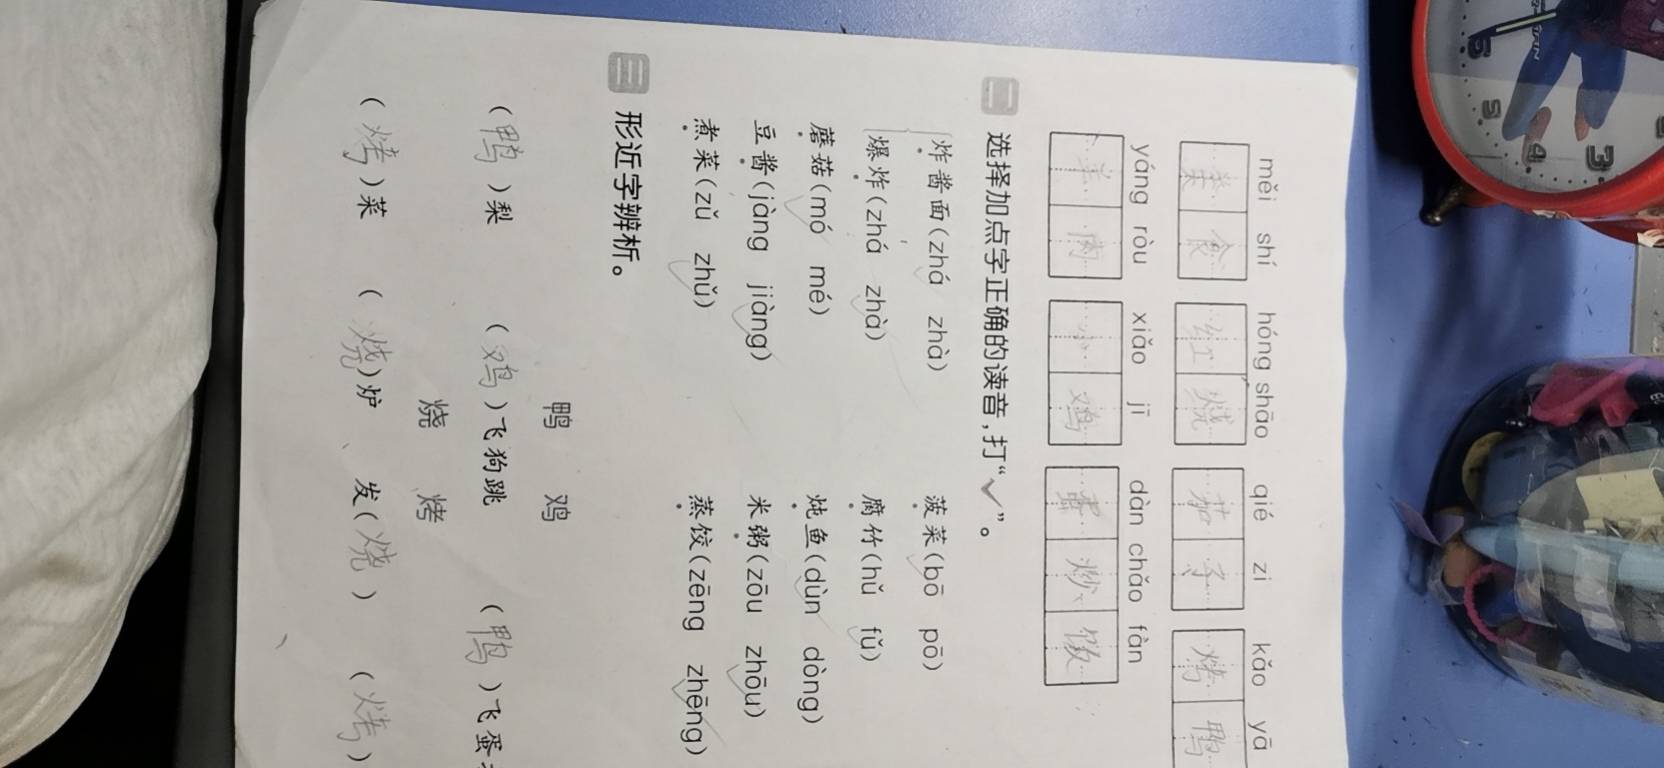 měi shí hóng shāo qié zi kǎo yā
美食 红烧 茄子 烤鸭
yáng ròu xiǎo jī dàn chǎo fàn
羊肉 小鸡 蛋炒饭
二 选择加点字正确的读音,打“✓”。
炸酱面(zhá zhà) 菠菜(bō pō)
爆炸(zhá zhà) 腐竹(hǔ fǔ)
蘑菇(mó mé) 炖鱼(dùn dòng)
豆酱(jàng jiàng) 米粥(zōu zhōu)
煮菜(zǔ zhǔ) 蒸饺(zēng zhēng)
三 形近字辨析。
鸭 鸡
(鸭)梨 (鸡)飞狗跳 (鸭)飞蛋
烧 烤
(烤)菜 (烧)炉 发(烧) (烤)